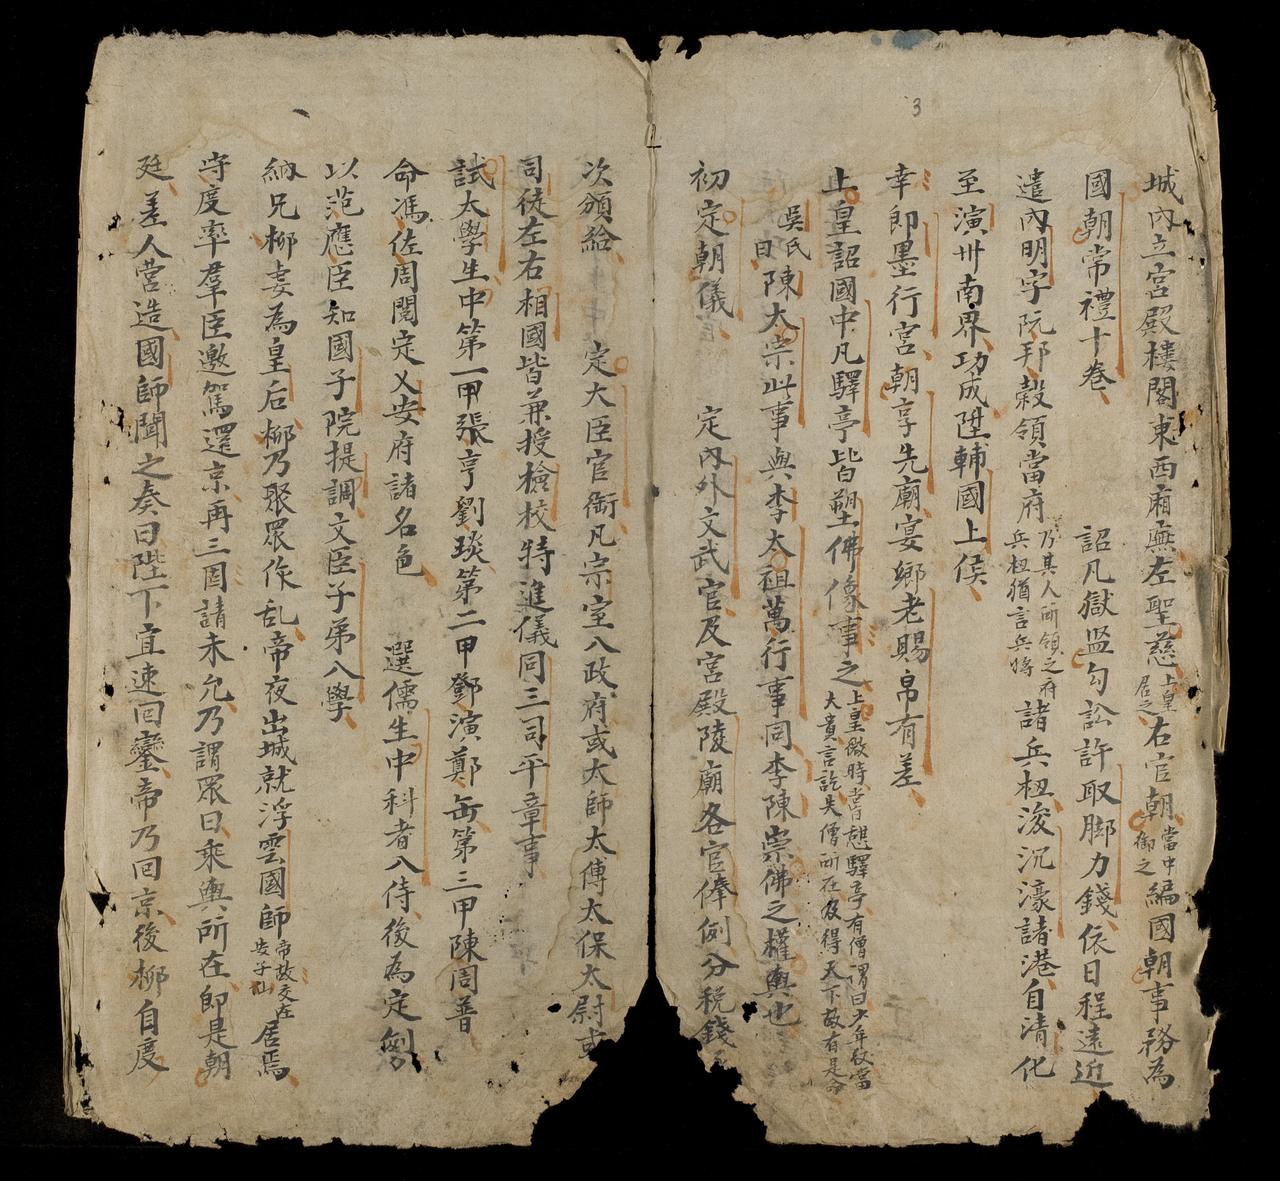 3
城內立宮殿樓閣東西廂廡左聖慈上皇居之右官朝當中御之編國朝事務為
國朝常禮十卷 詔凡獄監勾訟許取脚力錢依日程遠近
遣內明字阮邦穀領當府乃其人所領之府兵杻猶言兵將諸兵杻浚沉濠諸港自清化
至演卅南界功成陞輔國上侯
幸即墨行宮朝享先廟宴鄉老賜帛有差
上皇詔國中凡驛亭皆塑佛像事之上皇微時嘗憩驛亭有僧謂曰少年後當大貴言訖失僧所在及得天下故有是命
吳氏曰陳太崇此事與李太祖萬行事同李陳崇佛之權輿也
初定朝儀 定內外文武官及宮殿陵廟各官俸例分稅錢
次頒給 定大臣官銜凡宗室八政府或太師太傅太保太尉或
司徒左右相國皆兼授檢校特進儀同三司平章事
試太學生中第一甲張亨劉琰第二甲鄧演鄭缶第三甲陳周普
命馮佐周閱定乂安府諸名色 選儒生中科者八侍後為定例
以范應臣知國子院提調文臣子弟八學
納兄柳妻為皇后柳乃聚眾作乱帝夜出城就浮雲國師帝故交在安子仙居焉
守度率羣臣邀駕還京再三固請未允乃謂眾曰乘輿所在即是朝
廷差人營造國師聞之奏曰陛下宜速回鑾帝乃回京後柳自度